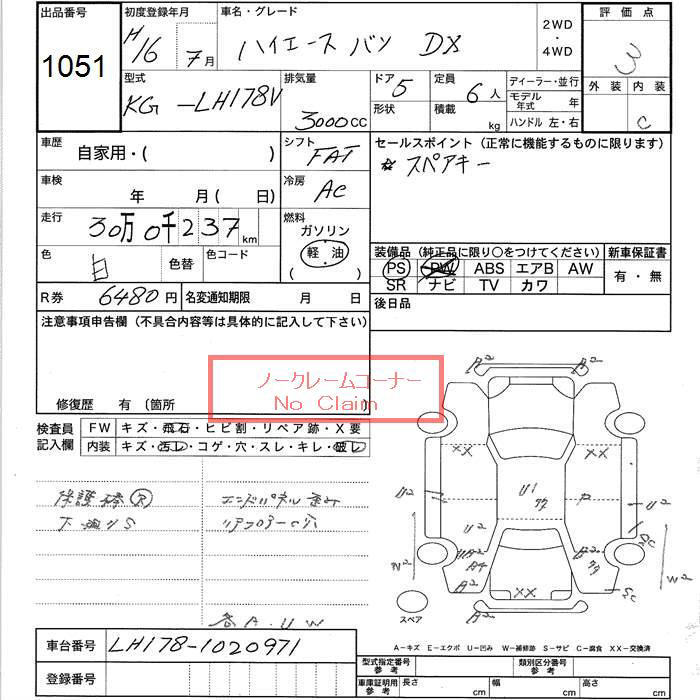 出品番号 初度登録年月 車名・グレード 2WD・4WD 評価点
1051 H16 7月 ハイエースバン DX 3
型式 排気量 ドア 5 定員 6人 ディーラー・並行 外装 内装
KG-LH178V 3000cc 形状 積載 kg モデル年式 年 C
ハンドル 左・右
車歴 自家用・( ) シフト FAT セールスポイント(正常に機能するものに限ります)
☆スペアキー
車検 年 月(日) 冷房 AC
走行 30万0千237km 燃料 ガソリン 軽油 ( )
色 白 色替 色コード
装備品(純正品に限り○をつけてください) 新車保証書
PS PW ABS エアB AW 有・無
SR ナビ TV カワ
R券 6480円 名変通知期限 月 日 後日品
注意事項申告欄(不具合内容等は具体的に記入して下さい)
ノークレームコーナー
No Claim
修復歴 有 (箇所 )
検査員記入欄 FW キズ・飛石・ヒビ割・リペア跡・X要
内装 キズ・汚レ・コゲ・穴・スレ・キレ・破レ
保護棒欠 エンドパネル歪み
下廻りS リアフロアー穴
各A・U W
A2 A2
XX XX
U1
U2 P U2
U2
W2 A2 A2 W2
XX SC
A2 A2
スペア
車台番号 LH178-1020971
A-キズ E-エクボ U-凹み W-補修跡 S-サビ C-腐食 XX-交換済
登録番号
型式指定番号 参考 類別区分番号 参考
車庫証明用 参考 長さ cm 幅 cm 高さ cm